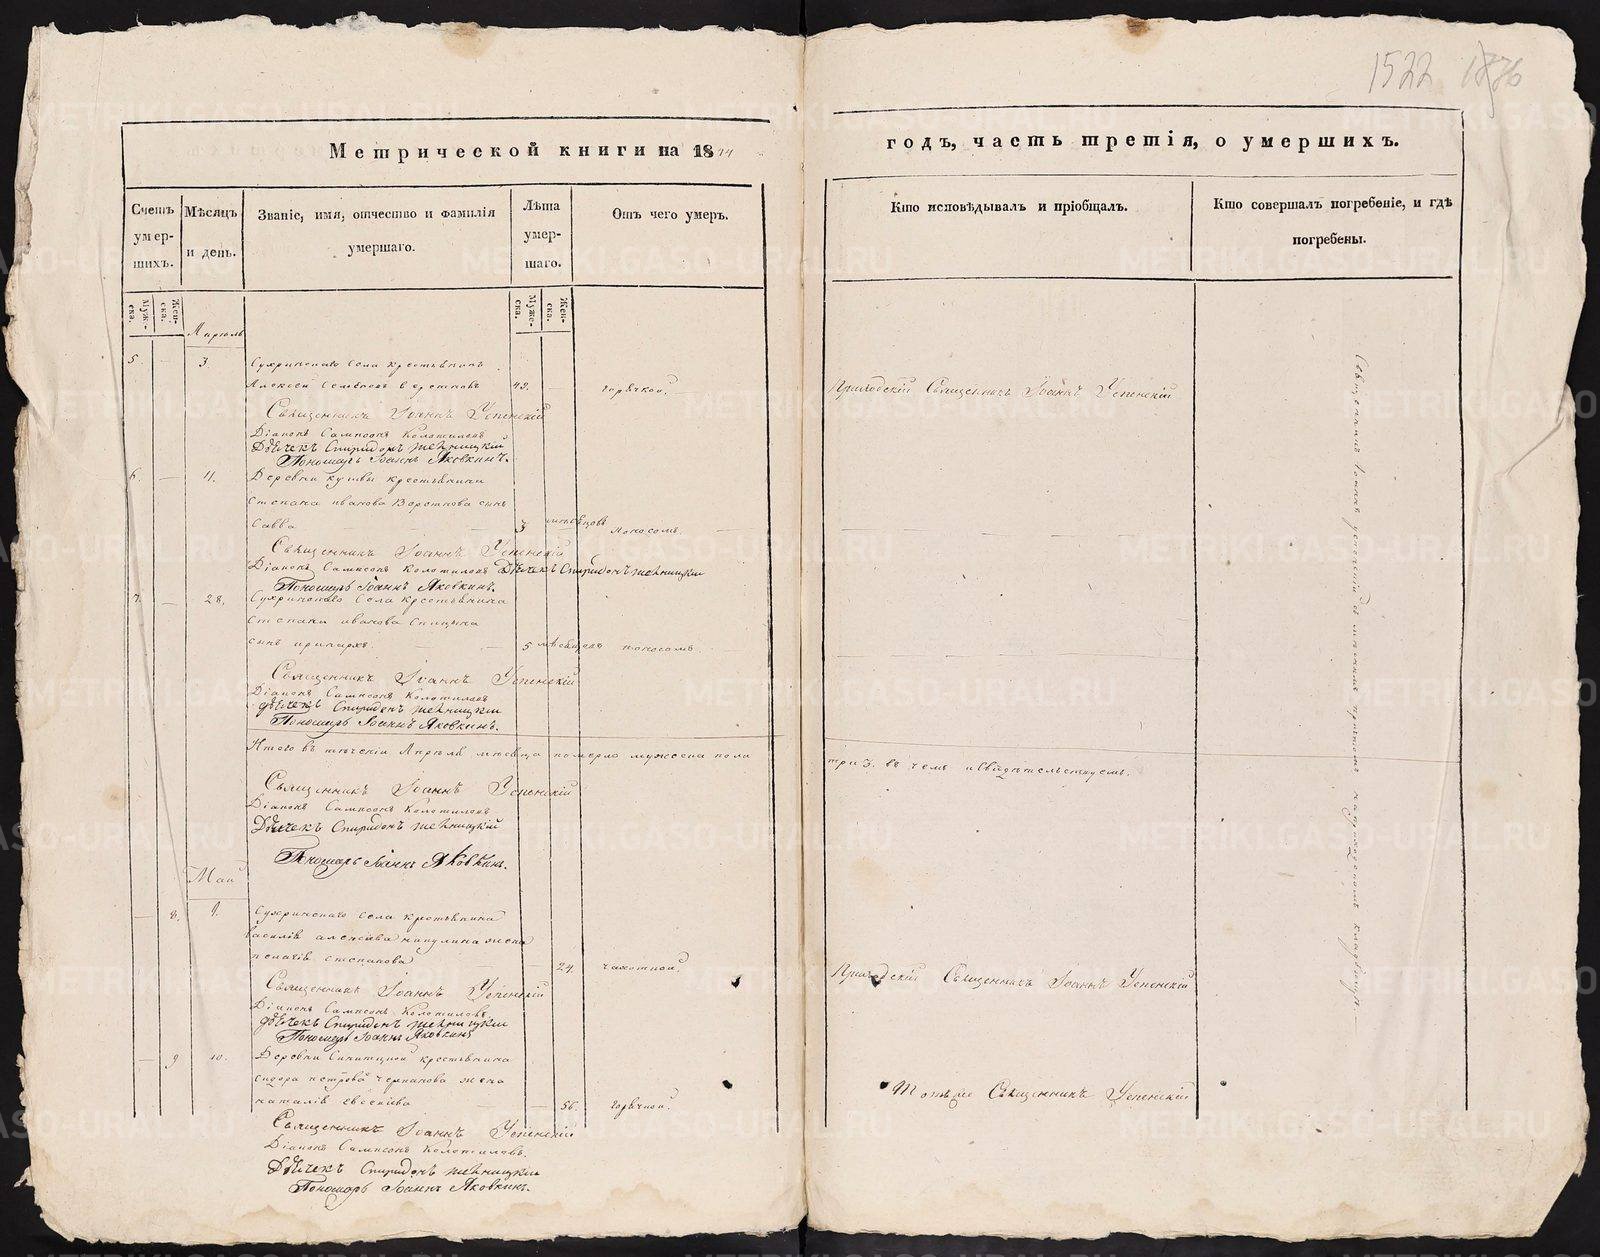 1522 1876
Метрической книги на 1844
годъ, часть третія, о умершихъ.
Счетъ умер-шихъ.
Мѣсяцъ и день.
Званіе, имя, отчество и фамилія умершаго.
Лѣта умер-шаго.
Отъ чего умеръ.
Кто исповѣдывалъ и пріобщалъ.
Кто совершалъ погребеніе, и гдѣ погребены.
Муж-ска.
Жен-ска.
Муже-ска.
Жен-ска.
Апрель
5. — 3
Сухринскаго села крестьянинъ
Алексей Семеновъ 49. — горячкой.
Приходскій Священникъ Іоаннъ Успенскій
Священникъ Іоаннъ Успенскій
Діаконъ Сампсонъ Колотиловъ
Дьячекъ Спиридонъ
Пономарь Іоаннъ Яковкинъ.
6. — 11.
Деревни крестьянина
Степана иванова сынъ
Савва — — 3 мѣсяцовъ поносомъ. —
Священникъ Іоаннъ Успенскій
Діаконъ Сампсонъ Колотиловъ Дьячекъ Спиридонъ
Пономарь Іоаннъ Яковкинъ.
7. — 28.
Сухринскаго села крестьянина
Степана иванова Спицына
сынъ — — 5 мѣсяцовъ поносомъ.
Священникъ Іоаннъ Успенскій
Діаконъ Сампсонъ Колотиловъ
дьячекъ Спиридонъ
Пономарь Іоаннъ Яковкинъ.
Итого въ теченіи Апрѣля мѣсяца померло мужеска пола
три 3. въ чемъ и свидѣтельствуемъ.
Священникъ Іоаннъ Успенскій
Діаконъ Сампсонъ Колотиловъ
Дьячекъ Спиридонъ
Пономарь Іоаннъ Яковкинъ.
Май
— 8. 9.
Сухринскаго села крестьянина
василія алексѣева никулина жена
пелагія степанова — 24. чахоткой.
Приходскій Священникъ Іоаннъ Успенскій
Священникъ Іоаннъ Успенскій
Діаконъ Сампсонъ Колотиловъ
дьячекъ Спиридонъ
Пономарь Іоаннъ Яковкинъ
— 9 10.
Деревни крестьянина
сидора петрова жена
наталія евсеиева — 56. горячкой.
Тотъ же Священникъ Успенскій
Священникъ Іоаннъ Успенскій
Діаконъ Сампсонъ Колотиловъ.
Дьячекъ Спиридонъ
Пономарь Іоаннъ Яковкинъ.